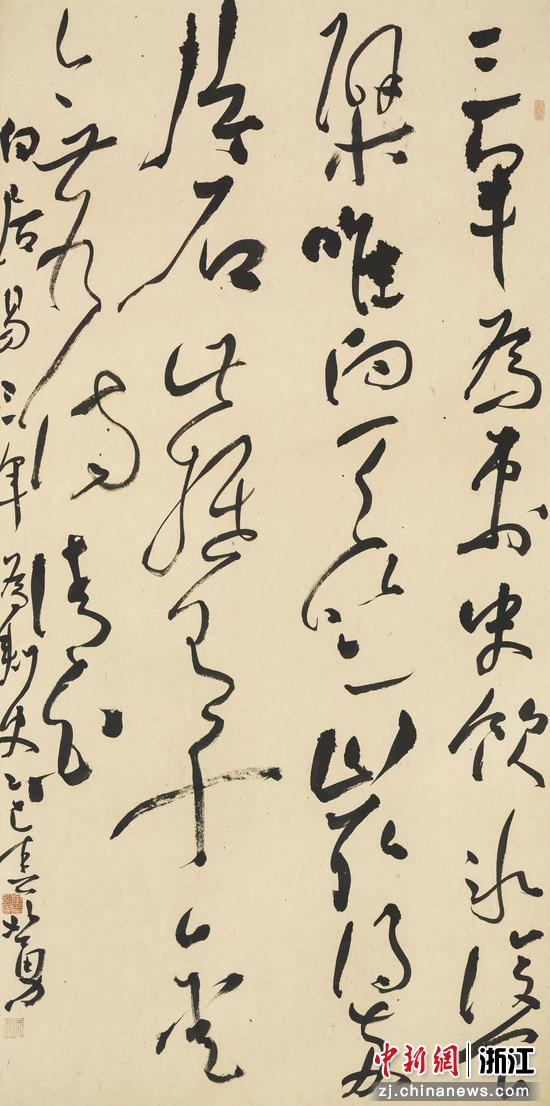 三年為刺史飲冰復食
檗唯向天竺山取得兩
片石此抵有千金
無乃傷清白
白居易三年為刺史乙巳春勇
中新網 浙江
zj.chinanews.com